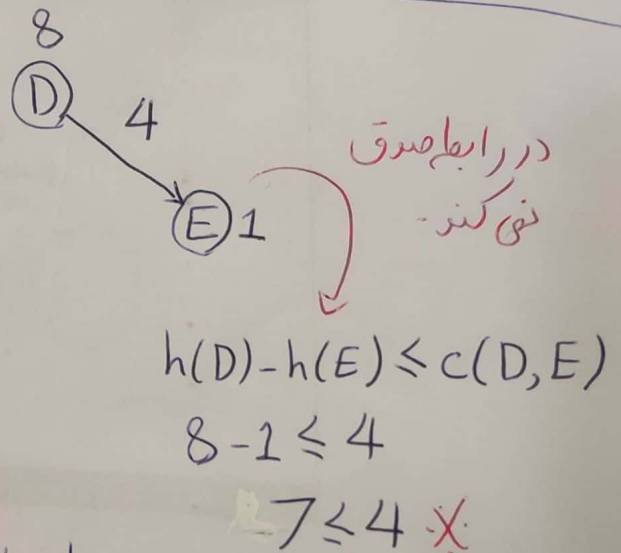 8
D
4
E 1
در رابطه صدق
نمی کند.
h(D)-h(E)≤c(D,E)
8-1≤4
7≤4 X